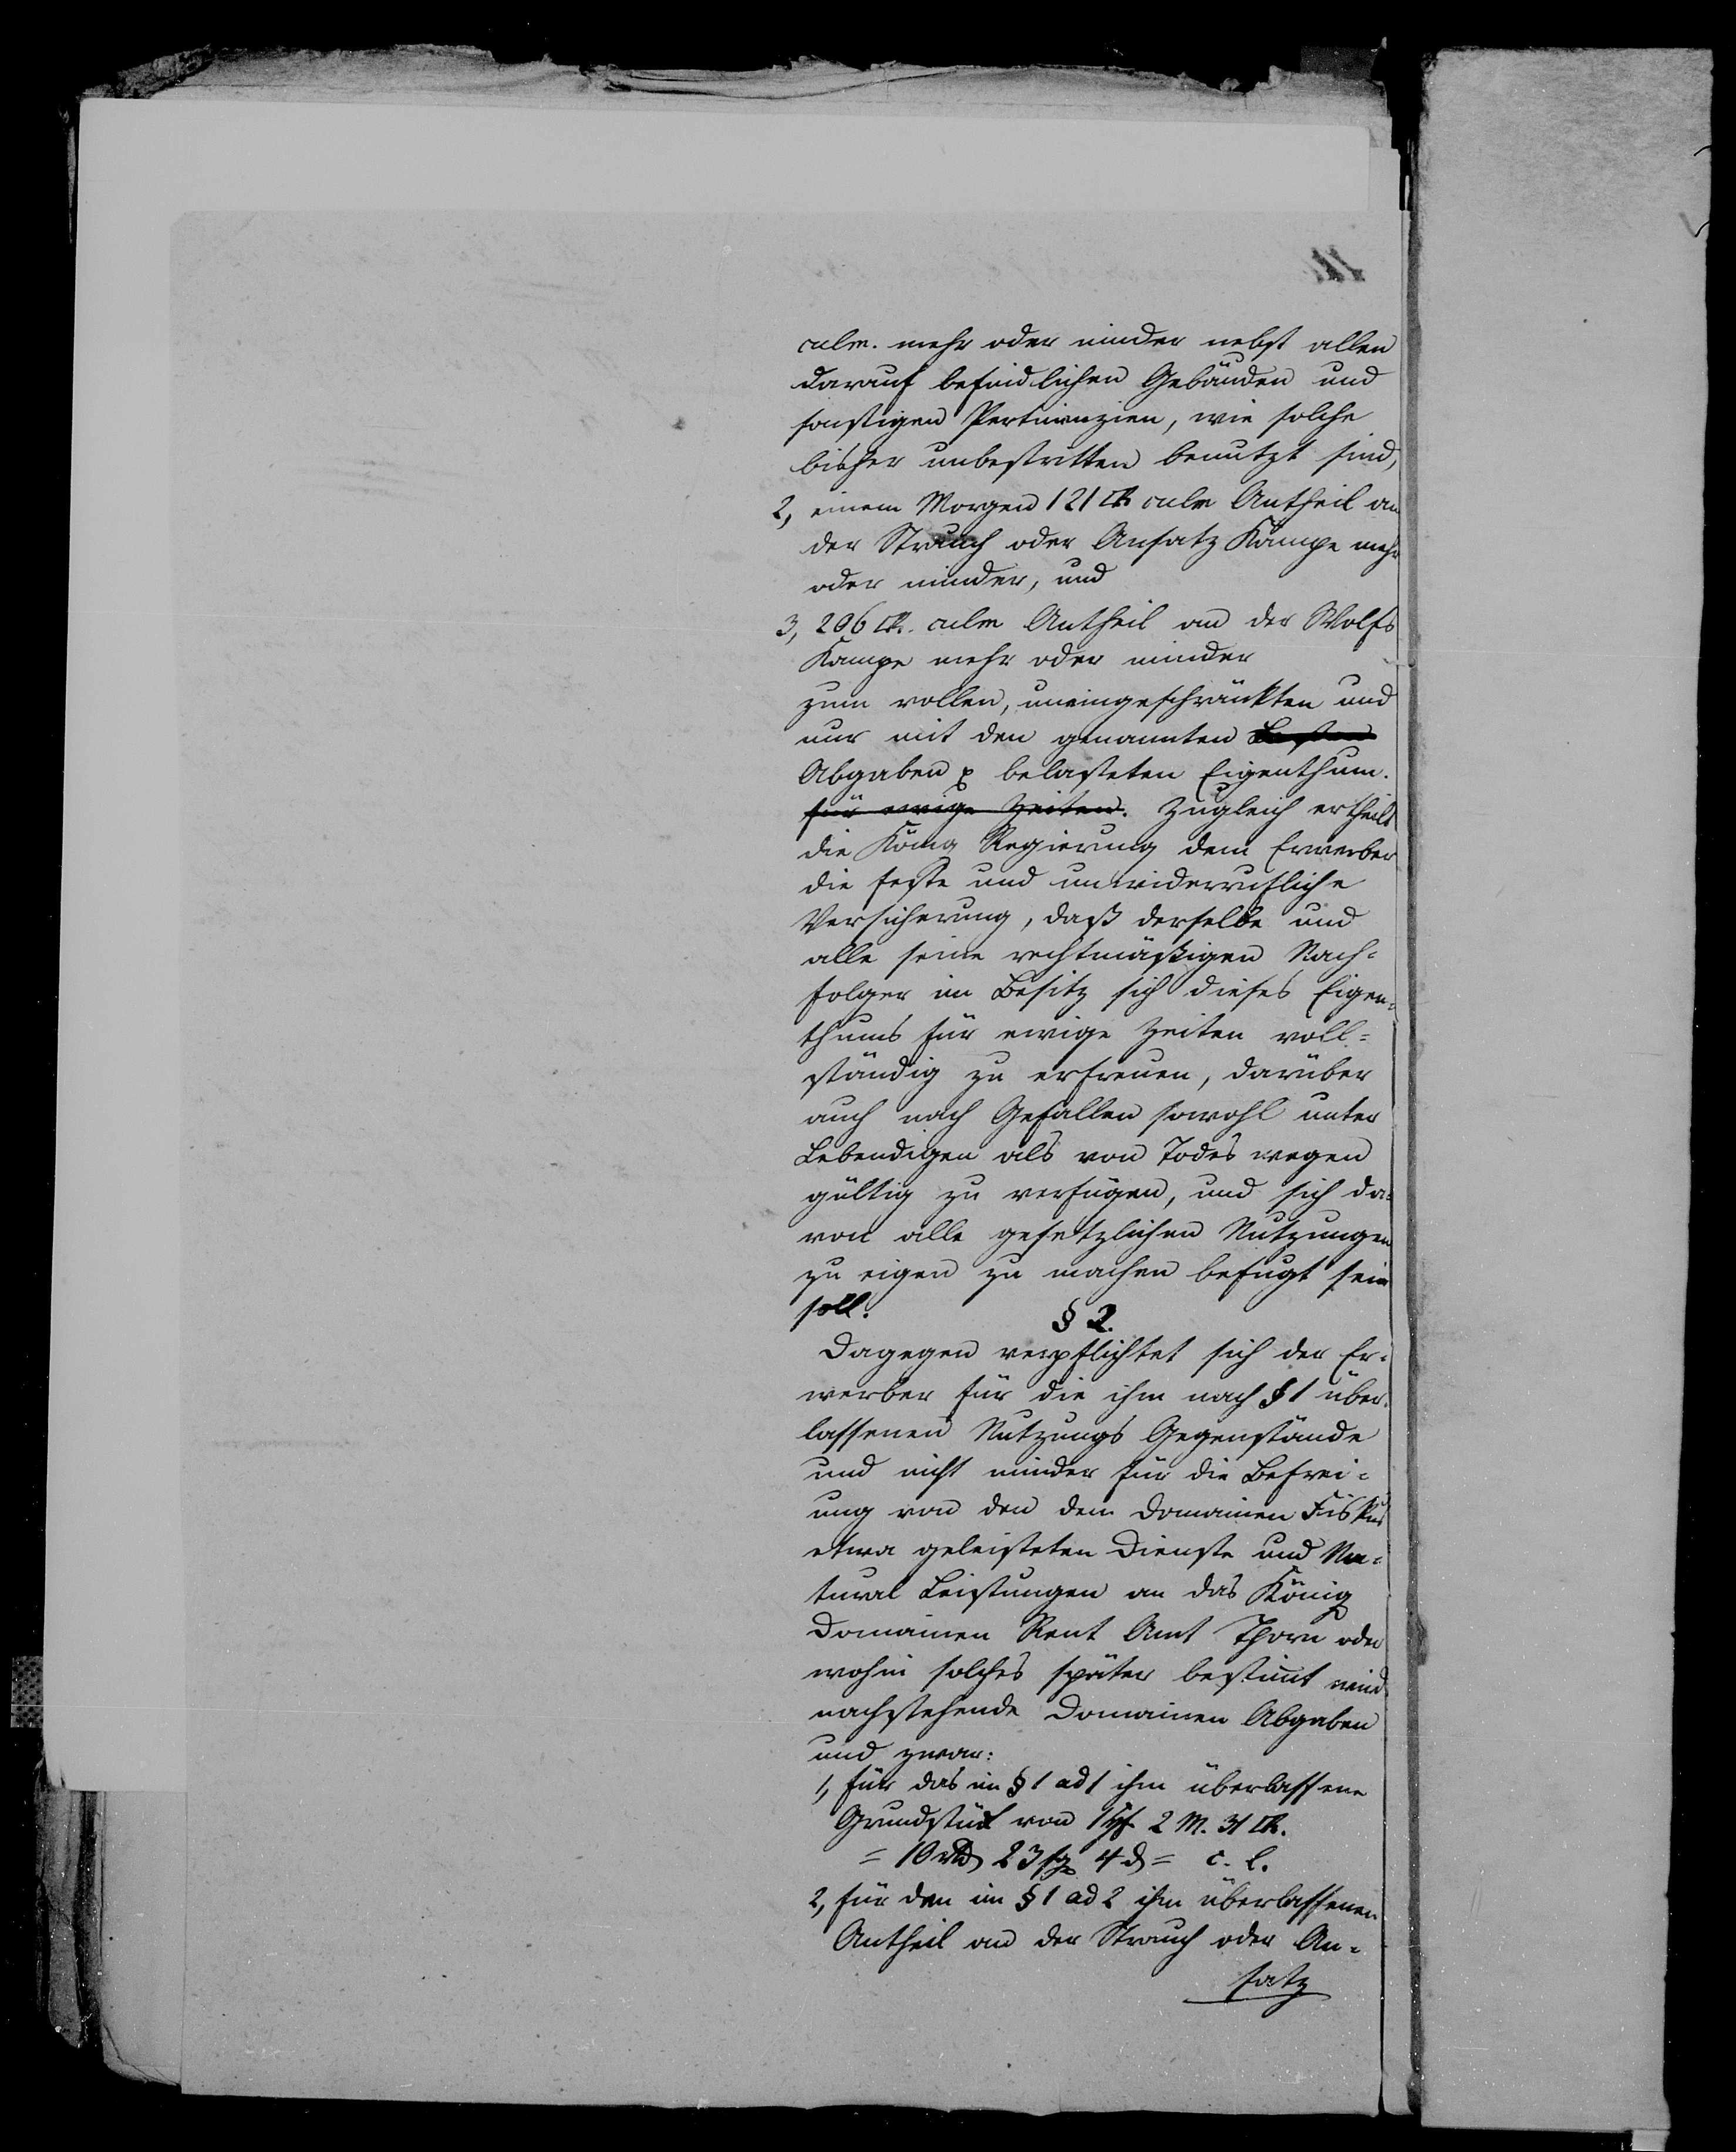 culm. mehr oder minder nebst allen
darauf befindlichen Gebäuden und
sonstigen Pertinenzien, wie solche
bisher unbestritten benutzt sind,
2, einem Morgen 121 □R culm Antheil an
der Strauch oder Ansatz Kämpe mehr
oder minder, und
3, 206 □R. culm Antheil an der Wolfs
Kampe mehr oder minder
zum vollen, uneingeschränkten und
nur mit den genannten Lasten
Abgaben p belasteten Eigenthum.
für ewige Zeiten. Zugleich ertheilt
die König Regierung dem Erwerber
die feste und unwiderrufliche
Versicherung, daß derselbe und
alle seine rechtmäßigen Nach=
folger im Besitz sich dieses Eigen=
thums für ewige Zeiten voll=
ständig zu erfreuen, darüber
auch nach Gefallen sowohl unter
Lebendigen als von Todes wegen
gültig zu verfügen, und sich da=
von alle gesetzlichen Nutzungen
zu eigen zu machen befugt sein
soll.
§ 2.
Dagegen verpflichtet sich der Er=
werber für die ihm nach § 1 über=
lassenen Nutzungs Gegenstände
und nicht minder für die Befrei=
ung von den dem Domainen Fiskus
etwa geleisteten Dienste und Na=
tural Leistungen an das König
Domainen Rent Amt Thorn oder
wohin solches später bestimt wird
nachstehende Domainen Abgaben
und zwar:
1, für das im § 1 ad 1 ihm überlassene
Grundstück von 1 Hf 2 M. 31 □R.
= 10 rtl 23 sg 4 d =
2, für den im § 1 ad 2 ihm überlassenen
Antheil an der Strauch oder An=
satz